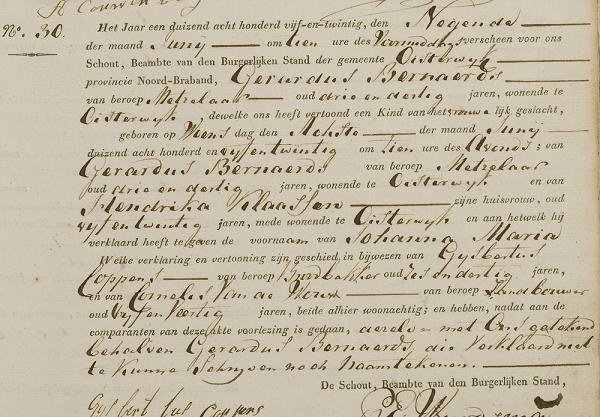 No. 30.
Het Jaar een duizend acht honderd vijf-en-twintig, den Negende
der maand Junij om tien ure des Voormiddags verscheen voor ons
Schout, Beambte van den Burgerlijken Stand der gemeente Oisterwyk
provincie Noord-Braband, Gerardus Bernaerds
van beroep Metzelaar oud drie en dertig jaren, wonende te
Oisterwyk, dewelke ons heeft vertoond een Kind van het vrouwelijk geslacht,
geboren op Woensdag den Achtste der maand Junij
duizend acht honderd en vyfentwintig om tien ure des Avonds; van
Gerardus Bernaerds van beroep Metzelaar
oud drie en dertig jaren, wonende te Oisterwyk en van
Hendrika Klaassen zijne huisvrouw, oud
vyfentwintig jaren, mede wonende te Oisterwyk en aan hetwelk hij
verklaard heeft te geven de voornaam van Johanna Maria
Welke verklaring en vertooning zijn geschied, in bijwezen van Gysbertus
Coppens van beroep Broodbakker oud Zes en dertig jaren,
en van Cornelis Van de Wouw van beroep Landbouwer
oud Vyf en Veertig jaren, beide alhier woonachtig; en hebben, nadat aan de
comparanten van deze akte voorlezing is gedaan, dezelve met Ons getekend
behalven Gerardus Bernaerds, die Verklaard niet
te kunne Schryven noch Naamtekenen.
De Schout, Beambte van den Burgerlijken Stand,
Coppens